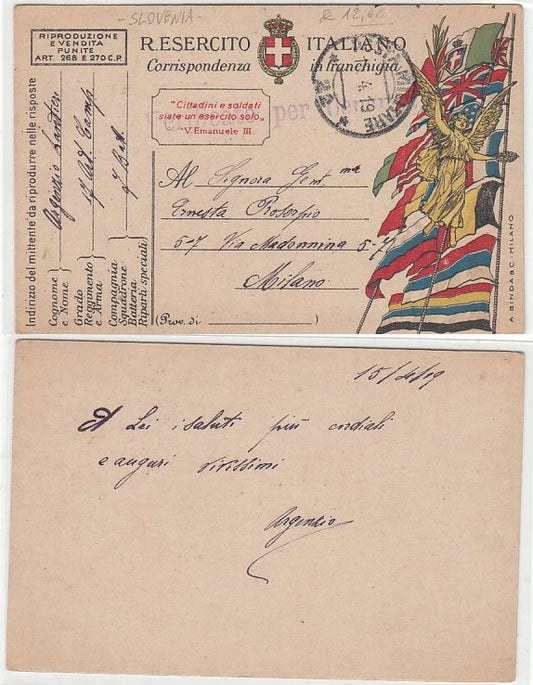 -SLOVENIA-
€ 12,00
RIPRODUZIONE
E VENDITA
PUNITE
ART. 268 E 270 C.P.
R. ESERCITO ITALIANO
Corrispondenza in franchigia
"Cittadini e soldati
siate un esercito solo„
V. Emanuele III.
per
MILITARE
4 19
Indirizzo del mittente da riprodurre nelle risposte
Cognome e Nome
Argenzio
Grado Reggimento e Arma
17 Art. Camp.
Compagnia Squadrone Batteria Riparti speciali
Batt.
Al Signora Gent.ma
Ernesta Proserpio
5-7 Via Madonnina 5-7
Milano
(Prov. di)
A. BINDA & C.-MILANO
15/4/19
A Lei i saluti più cordiali
e auguri vivissimi
Argenzio